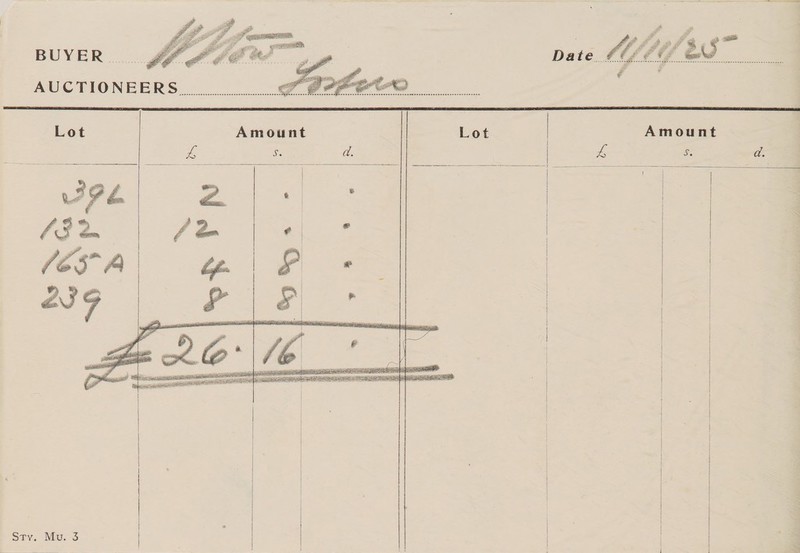 BUYER W Stow Date 11/11/25
AUCTIONEERS Fosters
Lot Amount Lot Amount
£ s. d. £ s. d.
39L 2 . .
132 12 . .
165A 4 8 .
239 8 8 .
£ 26. 16 .
STY. MU. 3